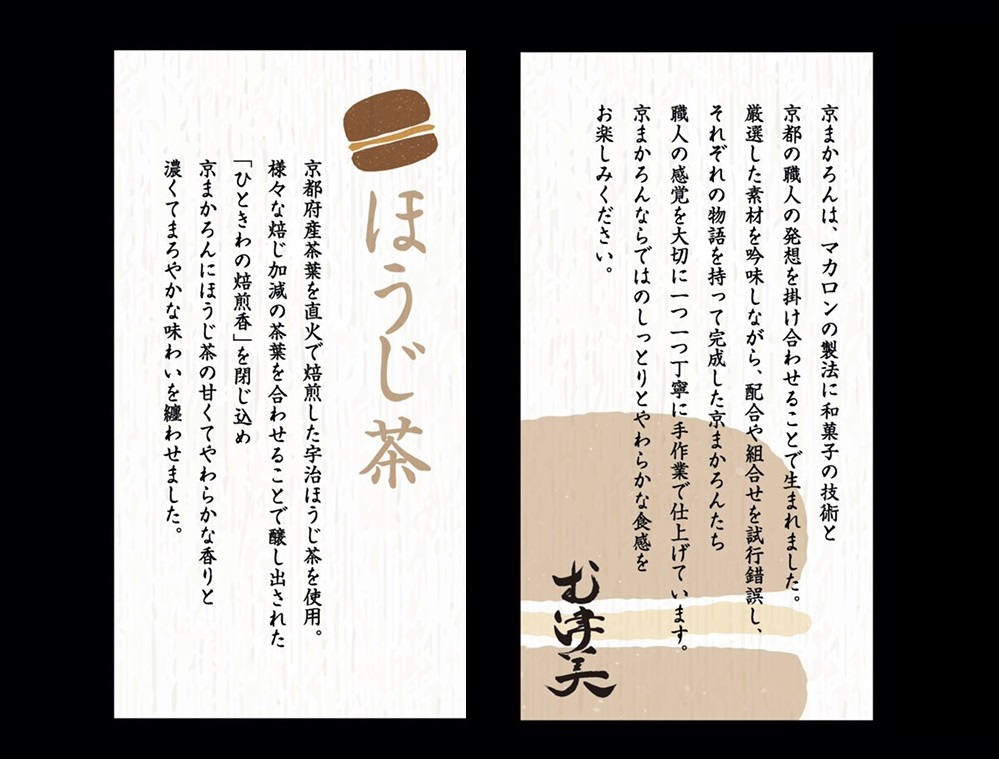 ほうじ茶
京都府産茶葉を直火で焙煎した宇治ほうじ茶を使用。
様々な焙じ加減の茶葉を合わせることで醸し出された
「ひときわの焙煎香」を閉じ込め
京まかろんにほうじ茶の甘くてやわらかな香りと
濃くてまろやかな味わいを纏わせました。
京まかろんは、マカロンの製法に和菓子の技術と
京都の職人の発想を掛け合わせることで生まれました。
厳選した素材を吟味しながら、配合や組合せを試行錯誤し、
それぞれの物語を持って完成した京まかろんたち
職人の感覚を大切に一つ一つ丁寧に手作業で仕上げています。
京まかろんならではのしっとりとやわらかな食感を
お楽しみください。
む津美